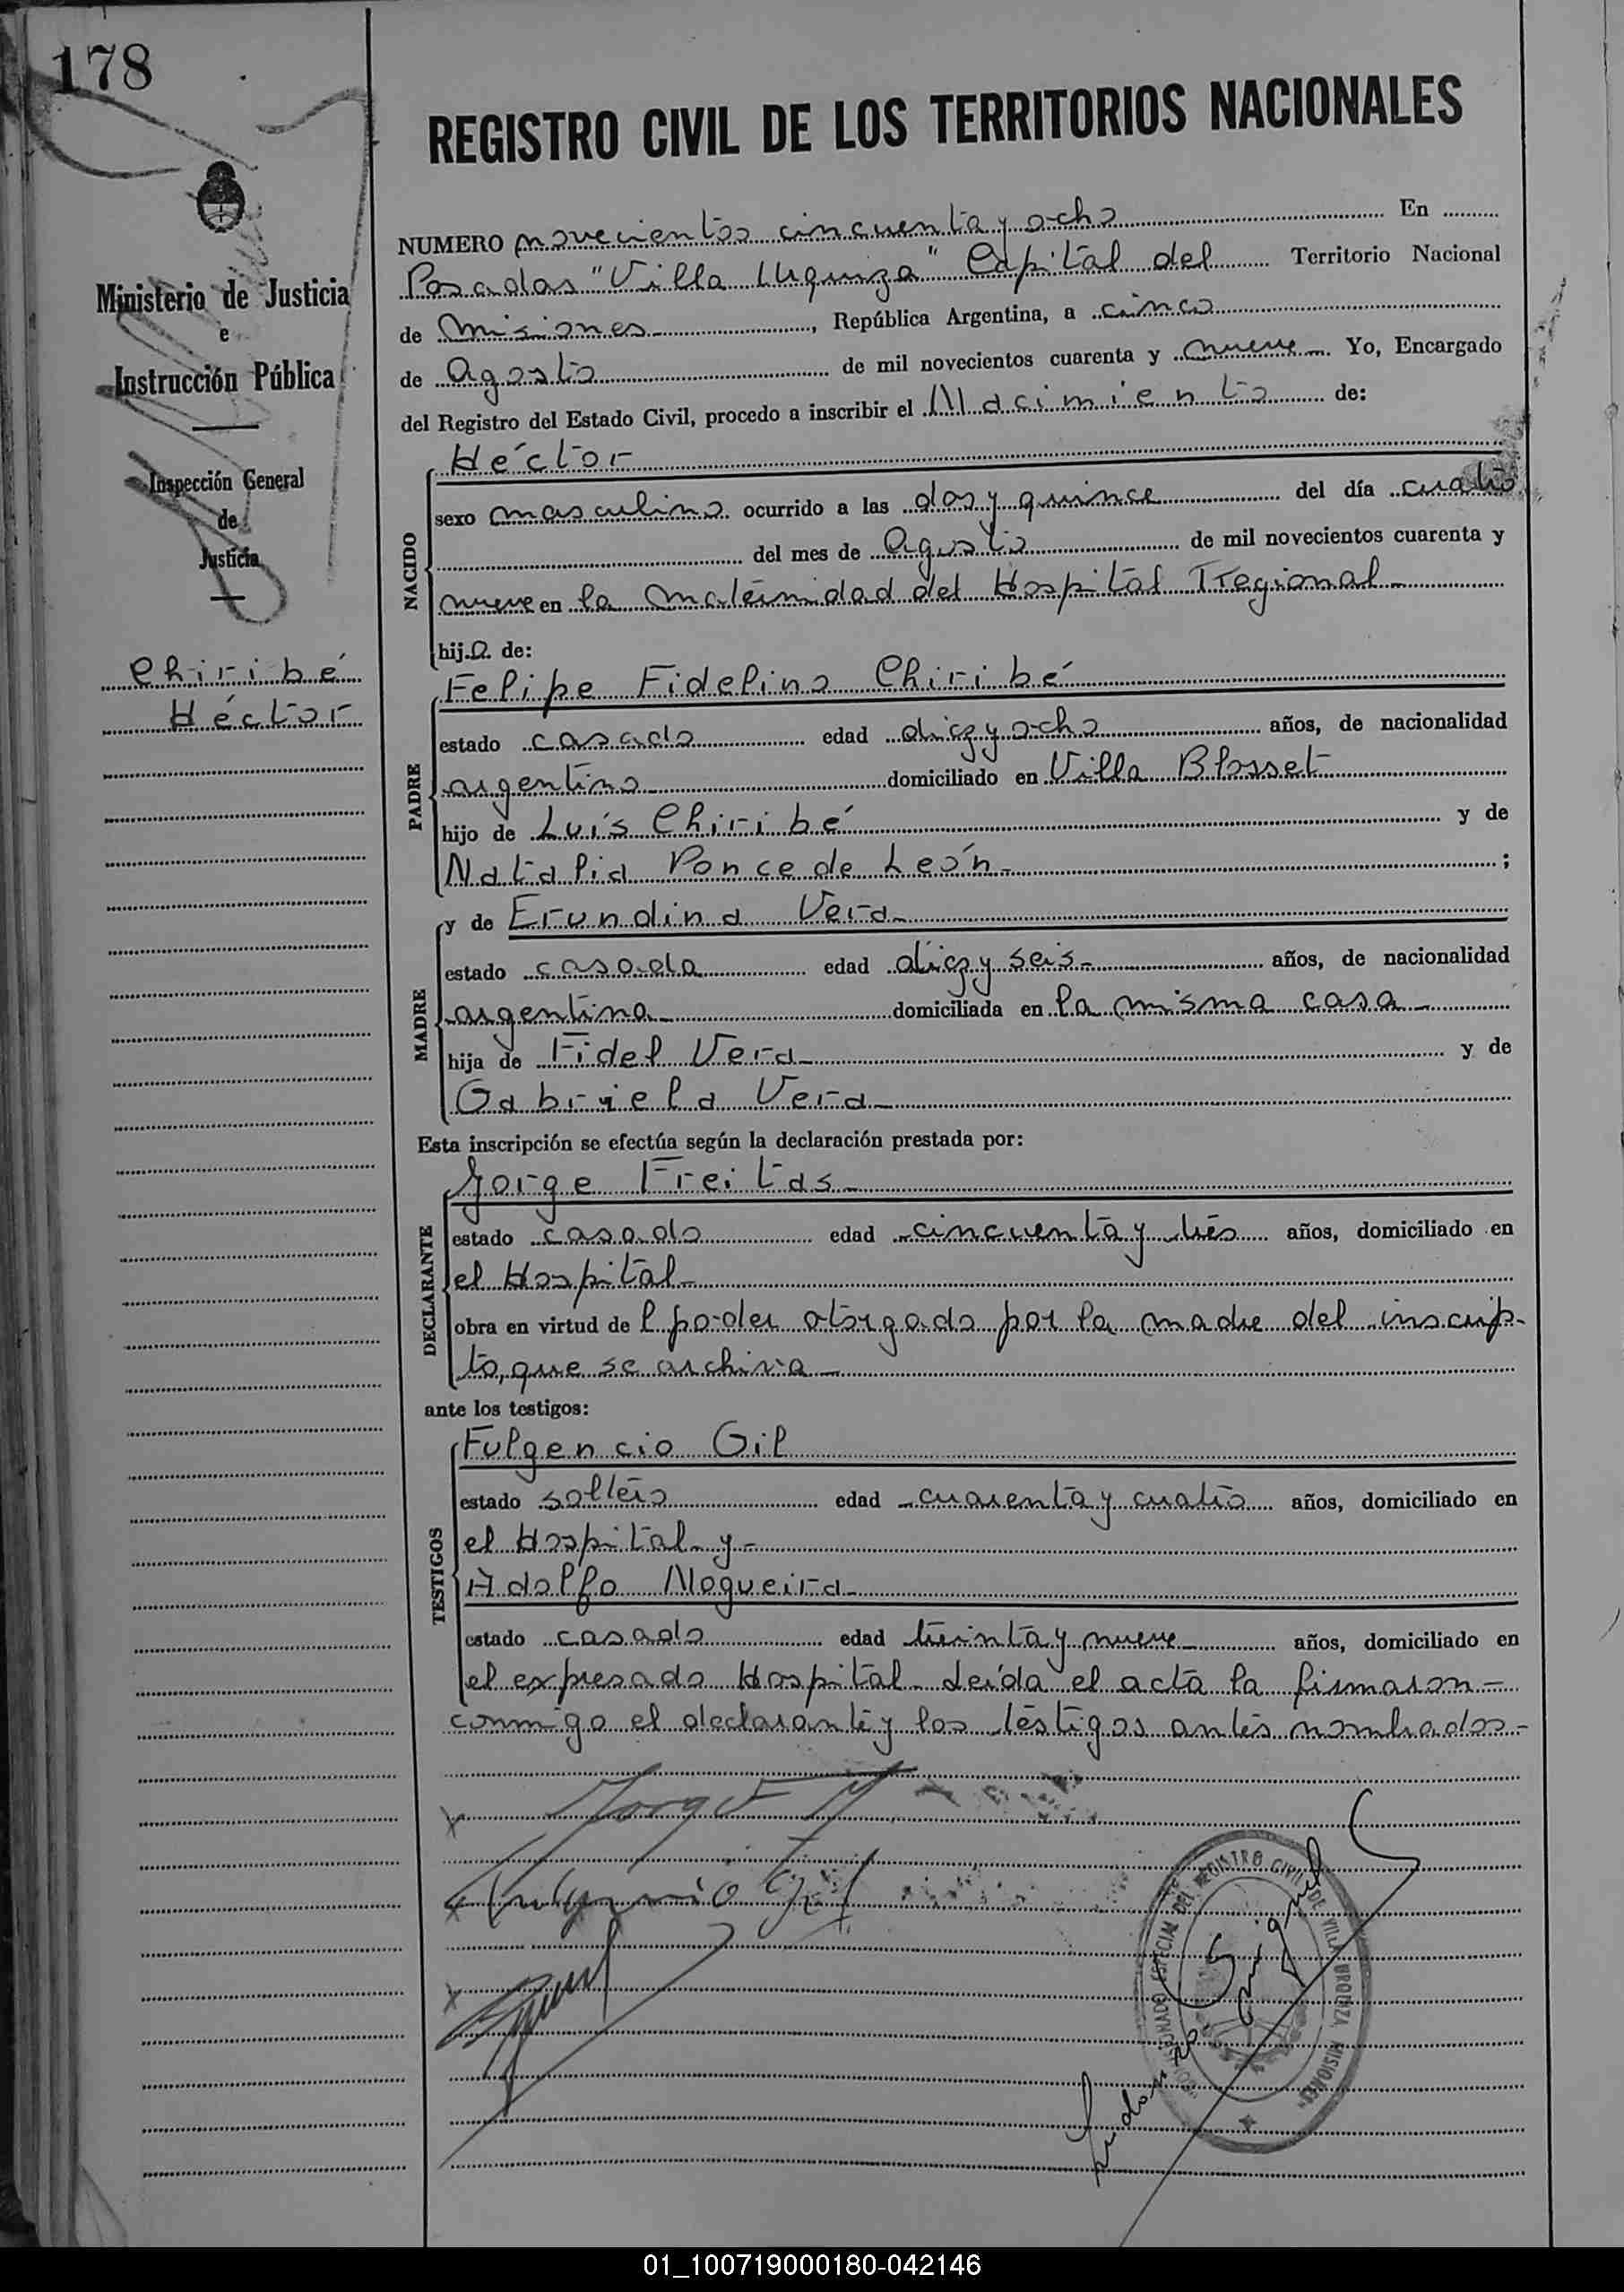 178
REGISTRO CIVIL DE LOS TERRITORIOS NACIONALES
Ministerio de Justicia
e
Instrucción Pública
Inspección General
de
Justicia
Chiribé
Héctor
NUMERO novecientos cincuenta y ocho En
Posadas "Villa Urquiza" Capital del Territorio Nacional
de Misiones, República Argentina, a cinco
de Agosto de mil novecientos cuarenta y nueve Yo, Encargado
del Registro del Estado Civil, procedo a inscribir el Nacimiento de:
NACIDO
Héctor
sexo masculino ocurrido a las dos y quince del día cuatro
del mes de Agosto de mil novecientos cuarenta y
nueve en la maternidad del Hospital Regional
hijo de:
PADRE
Felipe Fidelino Chiribé
estado casado edad diez y ocho años, de nacionalidad
argentino domiciliado en Villa Blosset
hijo de Luis Chiribé y de
Natalia Ponce de León ;
MADRE
y de Erundina Vera
estado casada edad diez y seis años, de nacionalidad
argentina domiciliada en la misma casa
hija de Fidel Vera y de
Gabriela Vera
Esta inscripción se efectúa según la declaración prestada por:
DECLARANTE
Jorge Freitas
estado casado edad cincuenta y tres años, domiciliado en
el Hospital
obra en virtud del poder otorgado por la madre del inscrip-
to, que se archiva
ante los testigos:
TESTIGOS
Fulgencio Gil
estado soltero edad cuarenta y cuatro años, domiciliado en
el Hospital y
Adolfo Nogueira
estado casado edad treinta y nueve años, domiciliado en
el expresado Hospital. Leída el acta la firmaron
conmigo el declarante y los testigos antes nombrados
Jorge
Fulgencio Gil
ESPECIAL DEL REGISTRO CIVIL DE VILLA URQUIZA MISIONES
01_100719000180-042146